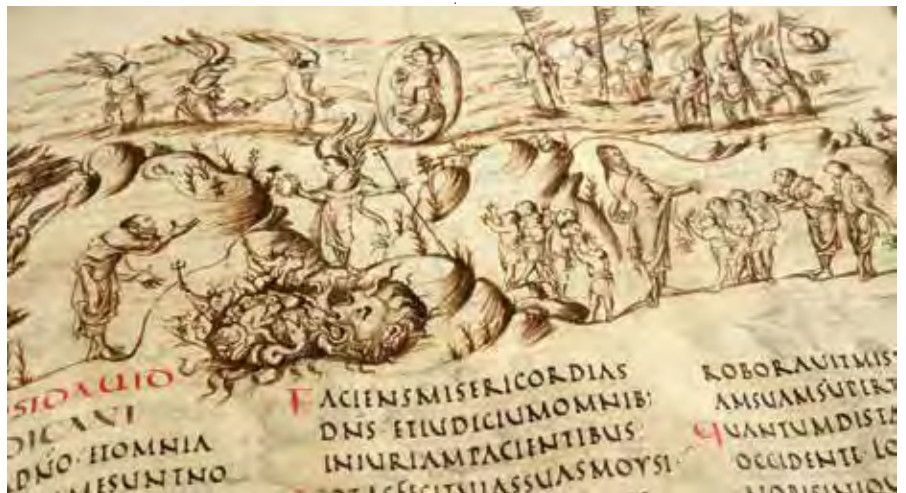 SIDAUID
DICANI
ADNO·ETOMNIA
AMESUNTNO
FACIENSMISERICORDIAS
DNS·ETIUDICIUMOMNIB:
INIURIAMPACIENTIBUS·
OTASFECITUIASSUASMOYSI·
ROBORAUITMIS
AMSUAMSUPERT
QUANTUMDISTA
OCCIDENTE·LO